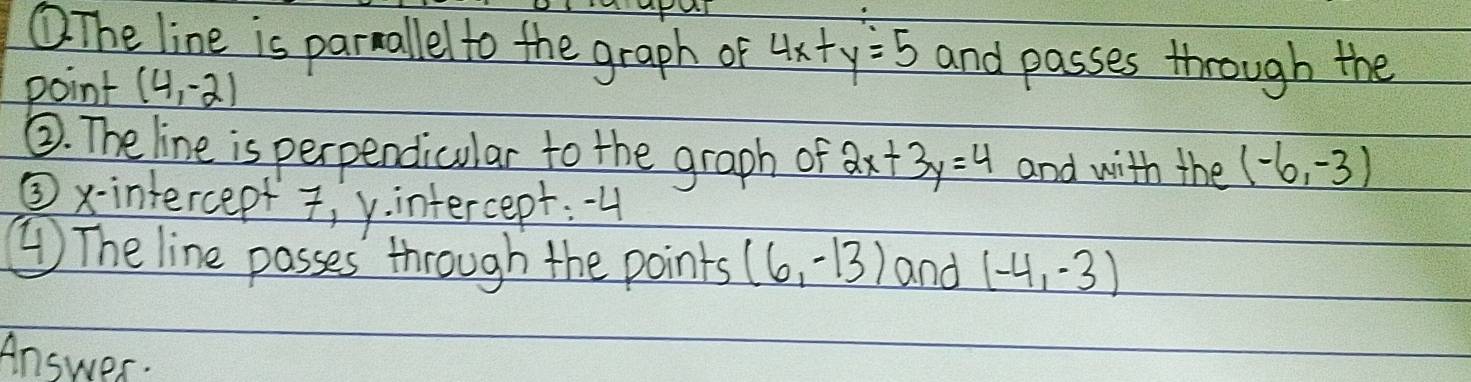 ① The line is parallel to the graph of 4x+y=5 and passes through the
point (4,-2)
②. The line is perpendicular to the graph of 2x+3y=4 and with the (-6,-3)
③ x-intercept 7, y.intercept: -4
④ The line passes through the points (6,-13) and (-4,-3)
Answer.